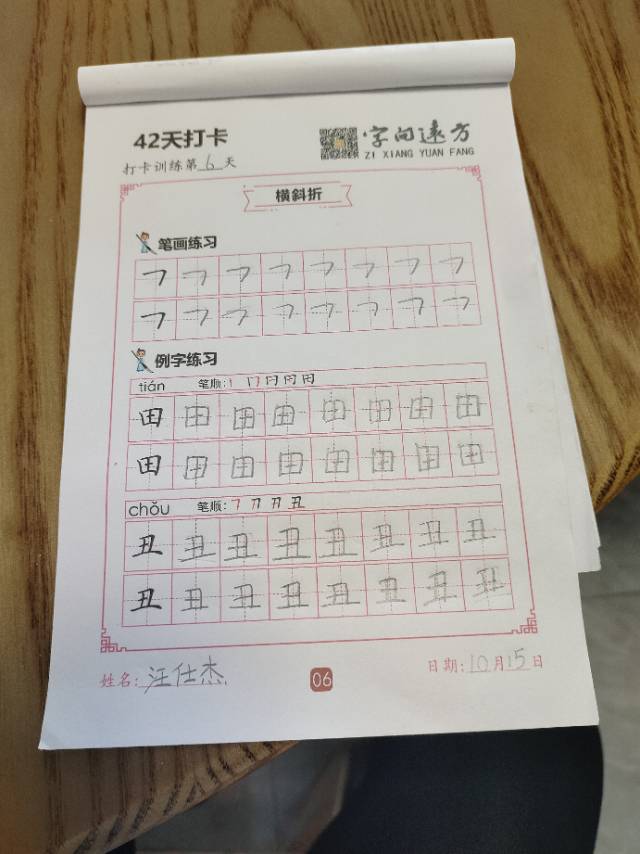 42天打卡
字向遠方
ZI XIANG YUAN FANG
打卡训练第6天
横斜折
笔画练习
㇕㇕㇕㇕㇕㇕㇕㇕
㇕㇕㇕㇕㇕㇕㇕㇕
例字练习
tián 笔顺:丨 冂 冃 用 田
田田田田田田田田
田田田田田田田田
chǒu 笔顺:㇕ 刀 丑 丑
丑丑丑丑丑丑丑丑
丑丑丑丑丑丑丑丑
姓名:汪仕杰
06
日期:10月15日